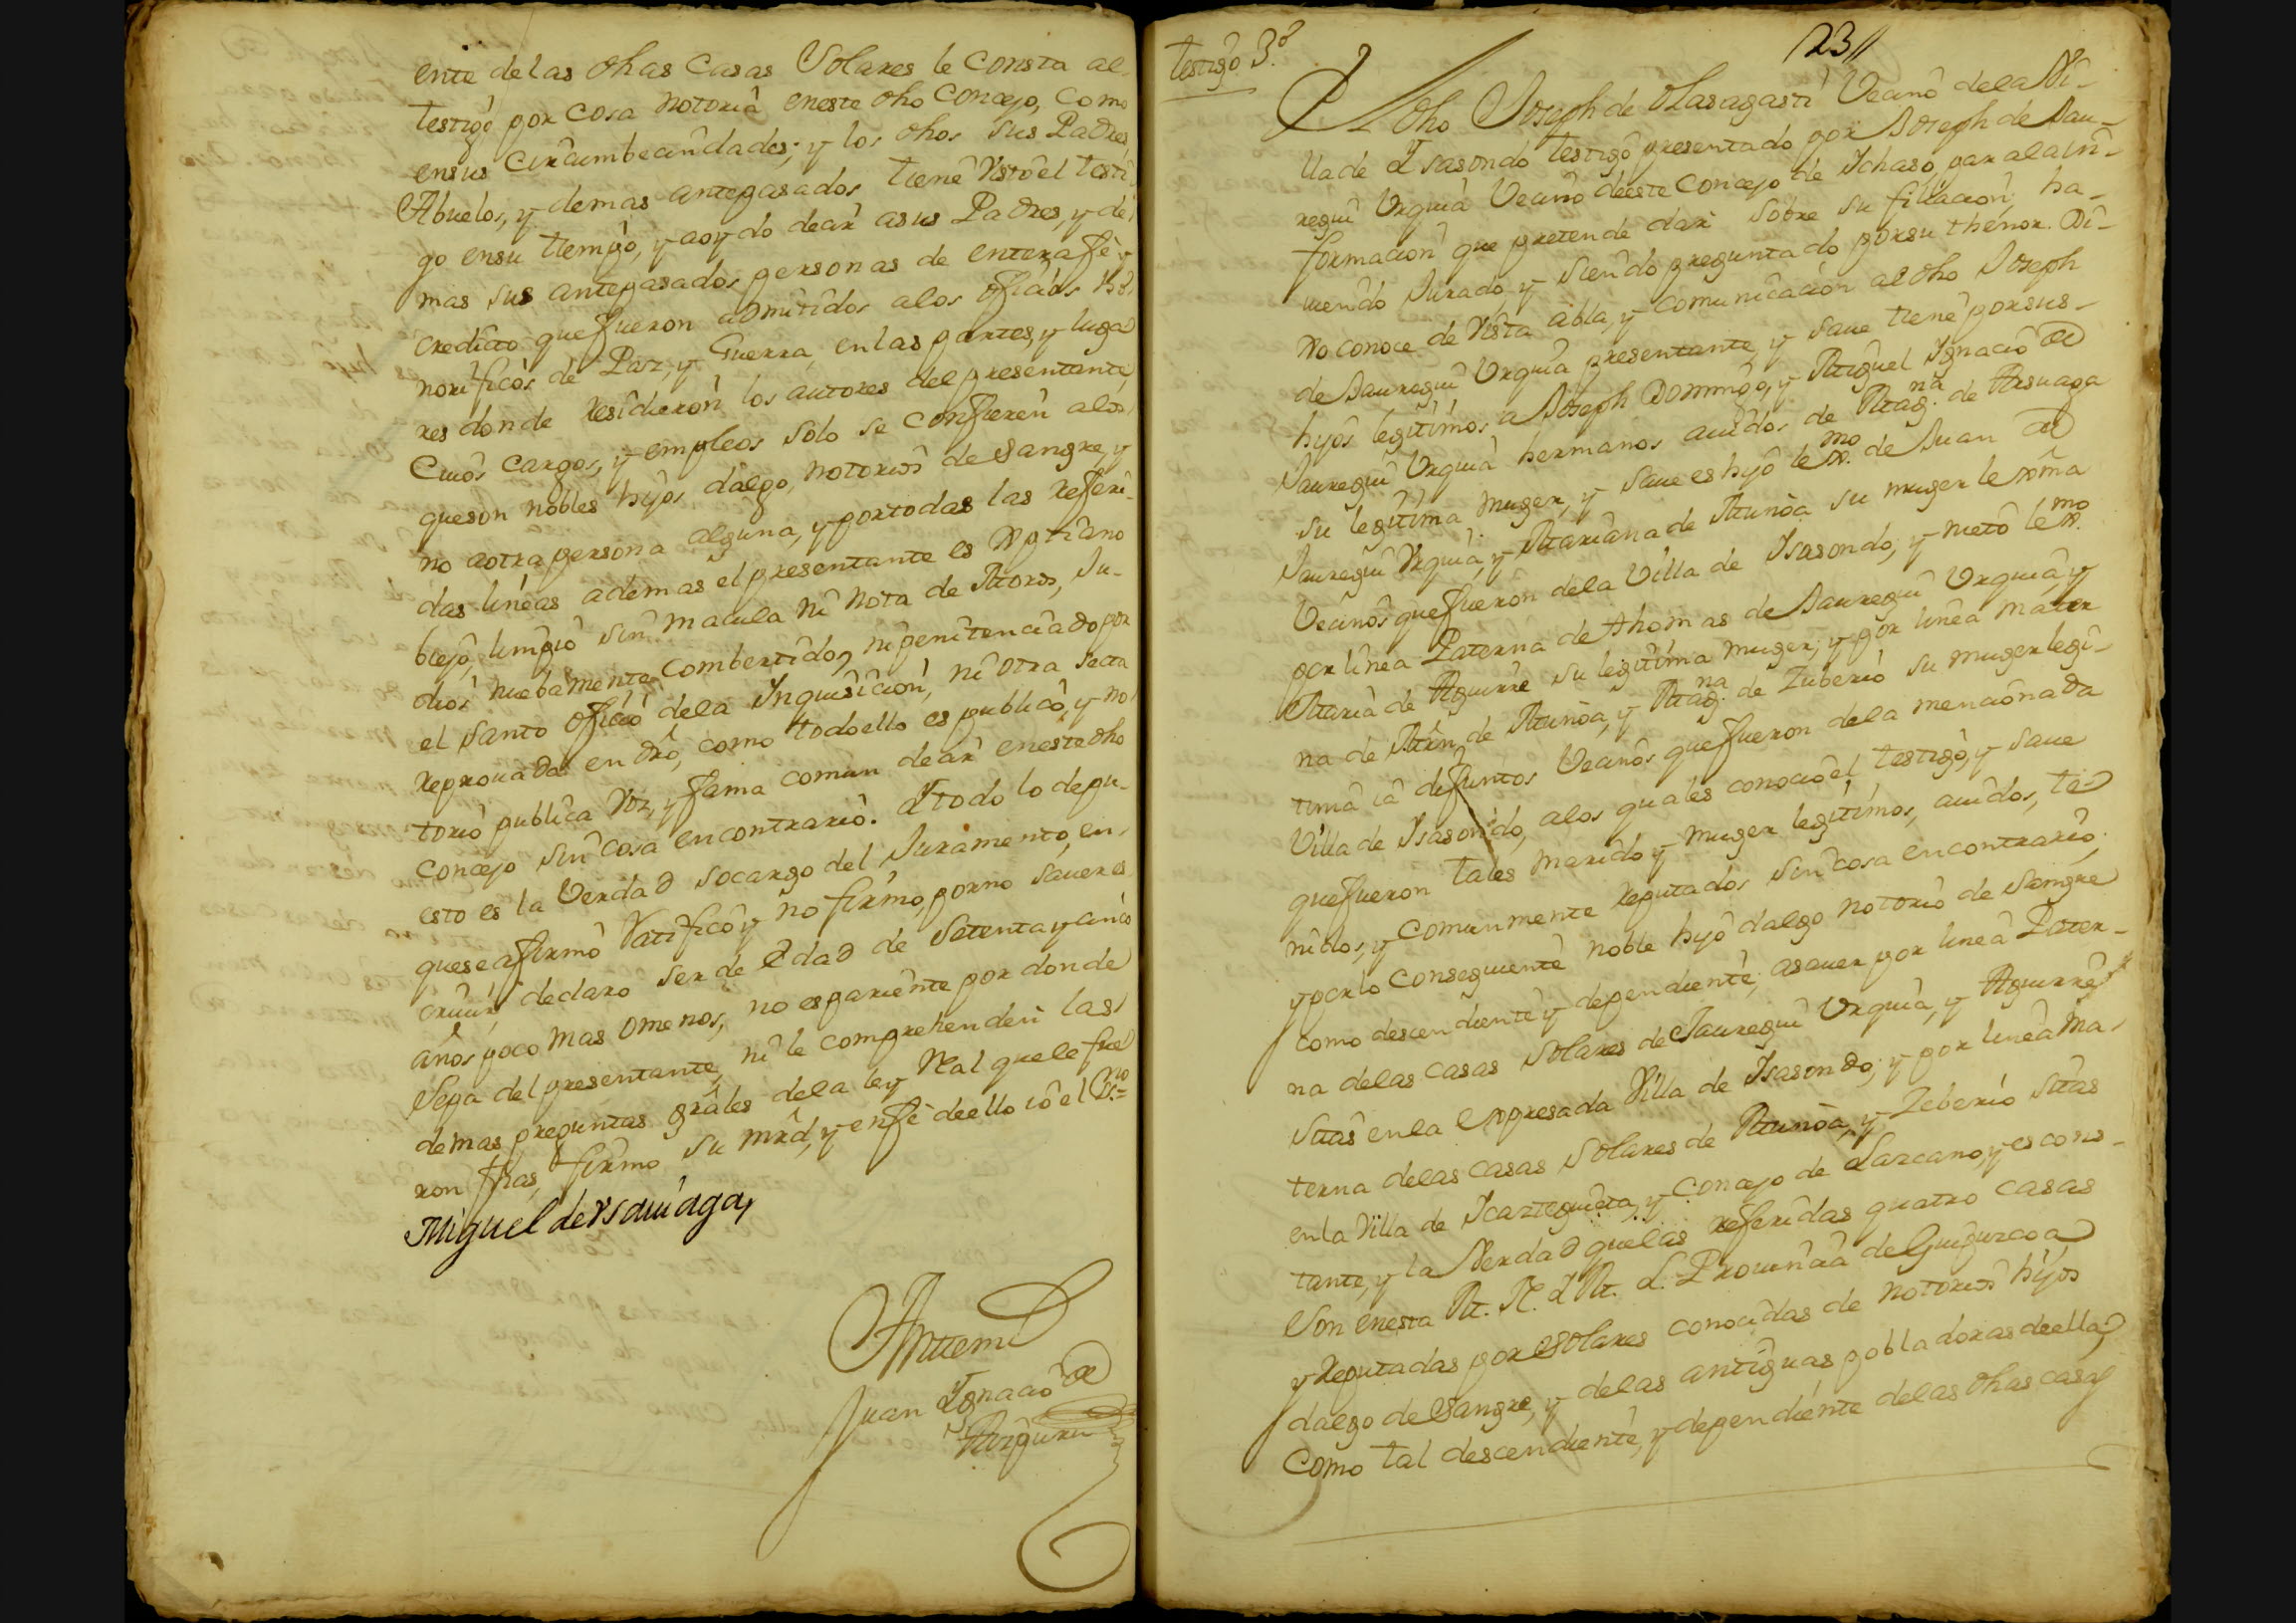 ente de las dhas Casas Solares le Consta al
testigo por cosa notoria en este dho Concejo, Como
en sus Circumbecindades; y los dhos sus Padres,
Abuelos, y demas antepasados tiene Visto el testi
go en su tiempo, y aoydo decir asus Padres, y de
mas sus antepasados personas de entera fe y
credito que fueron admitidos alos oficios Ho
norificos de Paz, y Guerra, en las partes, y luga
res donde residieron los autores del presentante,
Cuios Cargos, y empleos solo se confieren alos
que son nobles hijos dalgo, notorios de Sangre, y
no aotra persona alguna, y por todas las referi-
das lineas ademas el presentante es Xptiano
biejo, limpio sin macula ni nota de Moros, Ju-
dios nuebamente Combertidos, ni penitenciado por
el Santo oficio dela Inquisicion, ni otra secta
reprouada en dro, como todo ello es publico, y no
torio publica Voz, y fama comun decir en este dho
Concejo sin cosa en contrario. Y todo lo depu-
esto es la Verdad socargo del Juramento, en
que se afirmo Ratifico y no firmo, por no sauer es
criuir, declaro ser de Edad de Setenta y cinco
años poco mas o menos, no es pariente por donde
Sepa del presentante, ni le comprehenden las
demas preguntas grâles dela ley Real que le fue
ron fhas, firmo su mrd, y en fe de ello io el Ss.no
Miguel de Ysauiaga,
Antemi
Juan Ygnacio de
Testigo 3.o
23
El dho Joseph de Olasagasti Vecino dela Vi-
lla de Ysasondo testigo presentado por Joseph de Jau-
regui Urquia Vecino de este Concejo de Ichaso, para la in-
formacion que pretende dar sobre su filiacion, ha-
uiendo Jurado, y siendo preguntado por su thenor. Di-
xo conoce de Vista abla, y comunicacion al dho Joseph
de Jauregui Urquia presentante, y saue tiene por sus
hijos legitimos a Joseph Domingo, y Miguel Ignacio de
Jauregui Urquia hermanos auidos de Mag.na de Arsuaga
su legitima muger, y saue es hijo lexmo. de Juan de
Jauregui Urquia, y Mariana de Munoa su muger lexma
Vecinos que fueron dela Villa de Isasondo, y nieto lexmo.
por linea Paterna de Thomas de Jauregui Urquia, y
Maria de Aguirre su legitima muger, y por linea mater
na de Mrn de Munoa, y Mag.na de Zuberio su muger legi-
tima ia difuntos Vecinos que fueron dela mencionada
Villa de Isasondo, alos quales conocio el testigo, y saue
que fueron tales marido y muger legitimos, auidos, te
nidos, y comunmente reputados sin cosa en contrario,
y por lo consequente noble hijo dalgo notorio de Sangre
como descendiente y dependiente, asauer por linea Pater-
na delas casas Solares de Jauregui Urquia, y Aguirre
Sitas en la Expresada Villa de Isasondo; y por linea Ma
terna delas casas Solares de Munoa, y Zeberio Sitas
en la Villa de Icazteguieta, y Concejo de Lazcano, y es cons-
tante, y la Verdad que las referidas quatro casas
Son en esta M. N. Y M. L. Prouincia de Guipuzcoa
y Reputadas por Solares conocidas de notorios hijos
dalgo de Sangre, y delas antiguas pobladoras de ella,
Como tal descendiente, y dependiente delas dhas casas